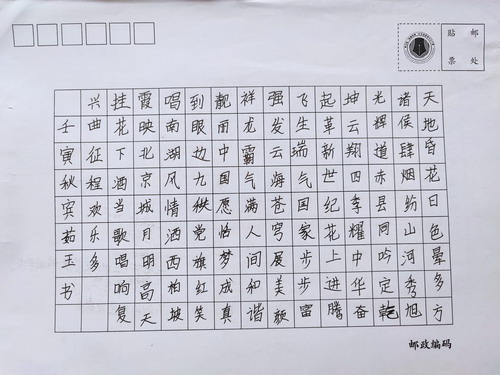 天地昏花日色晕多方
诸侯肆烟纷山河秀旭
光辉道赤县同吟定乾
坤云翔四季耀中华奋
起革新世纪花上进腾
飞生瑞气国家步步富
强发云海苍穹展美颜
祥龙霸气满人间和谐
靓丽中国愿恰梦成真
到眼边九秩党旗红笑
唱南湖风情洒西柏坡
霞映北京城月明高天
挂花下酒当歌唱响复
兴曲征程欢乐多
壬寅秋宾茹玉书
贴邮
票处
邮政编码